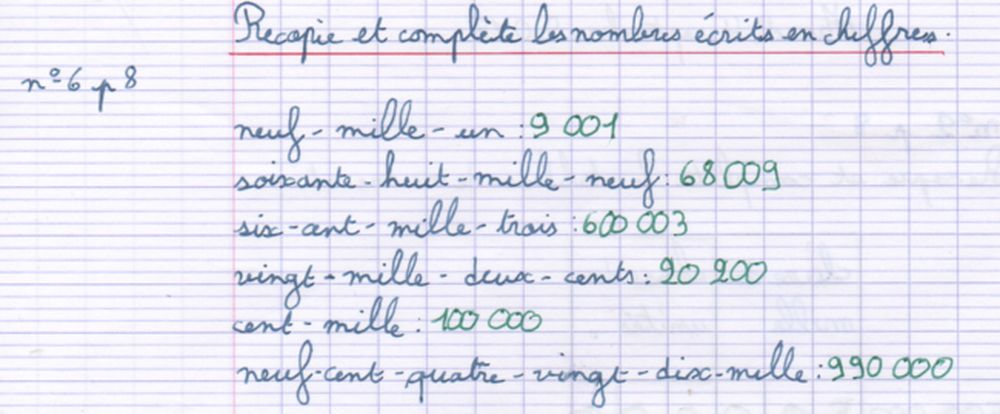 Recopie et complète les nombres écrits en chiffres.
n°6 p8
neuf-mille-un : 9 001
soixante-huit-mille-neuf : 68 009
six-cent-mille-trois : 600 003
vingt-mille-deux-cents : 20 200
cent-mille : 100 000
neuf-cent-quatre-vingt-dix-mille : 990 000